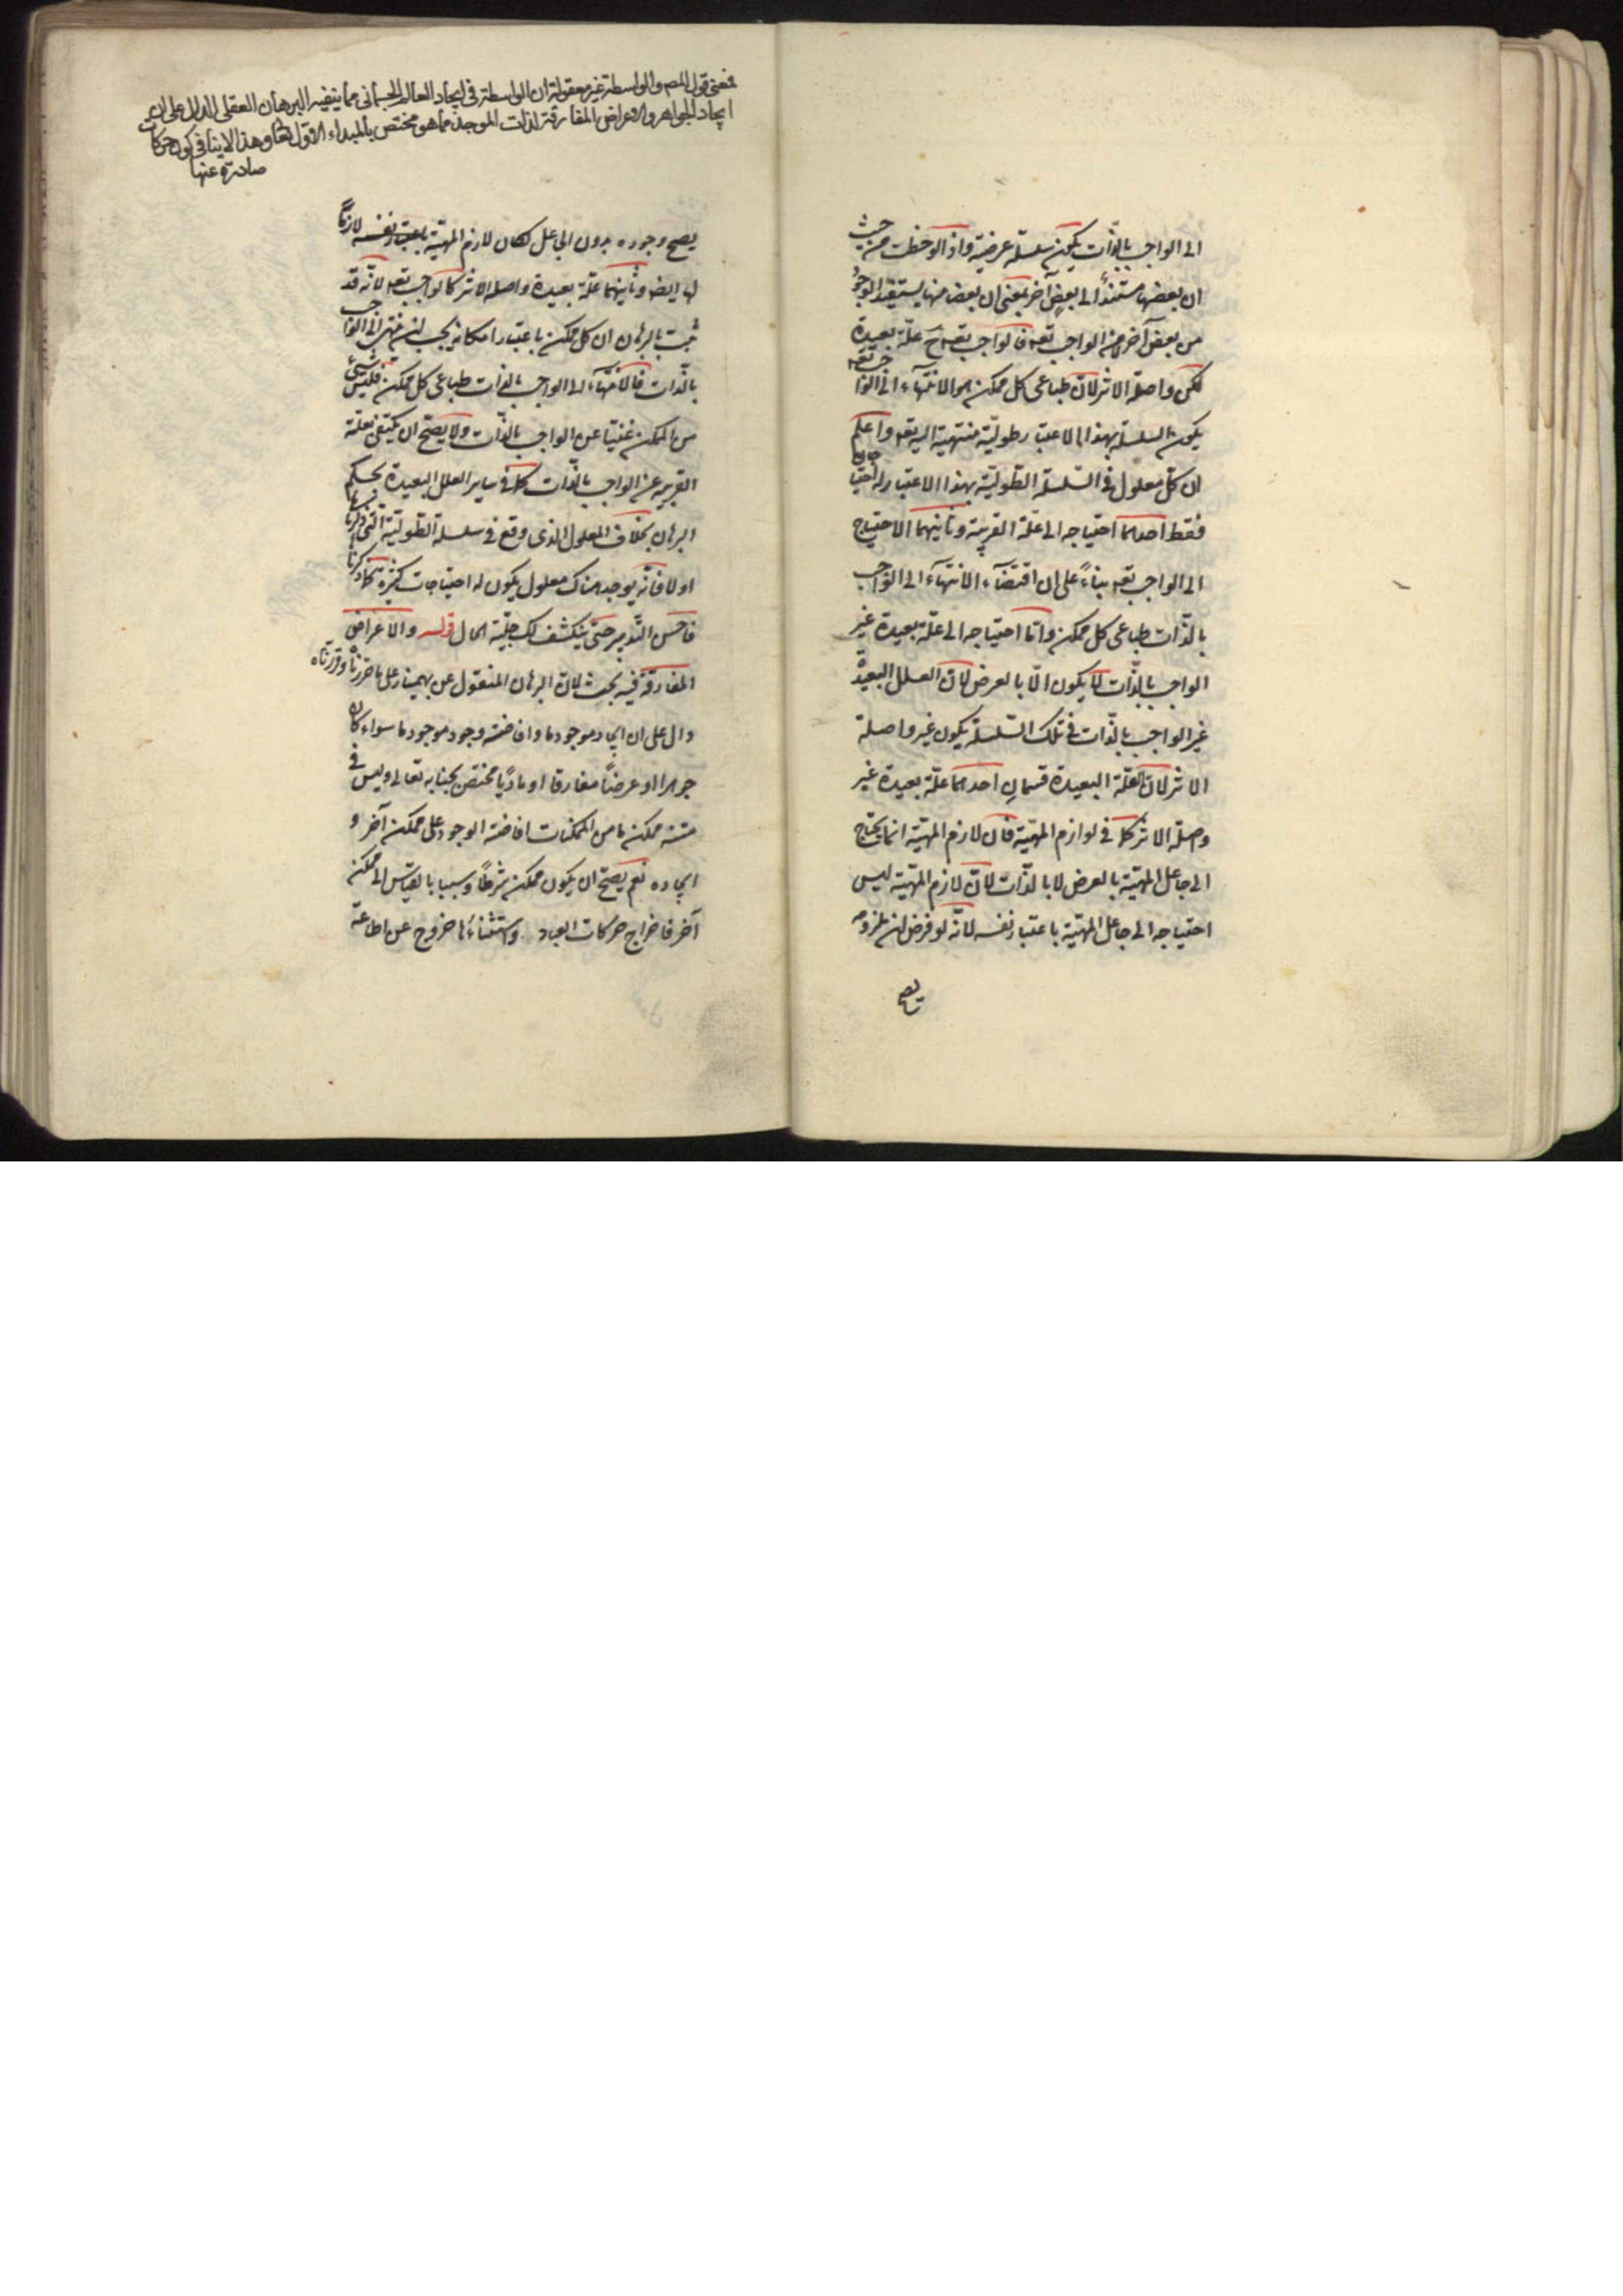 الى الواجب بالذّات يكون سلسلة عرضية واذا لوحظت من حيث
ان بعضها مستندٌ الى بعض آخر بمعنى ان بعض منها يستفيد الوجود
من بعض آخر من الواجب تعه فالواجب تعه ح علّة بعيدة
لكن واصلة الاثر لانّ طباعى كل ممكن هو الانتهاء الى الواجب تعه
يكون السلسلة بهذا الاعتبار طوليّة منتهية اليه تعه واعلم
ان كلّ معلول فى السّلسلة الطّوليّة بهذا الاعتبار له احتياجان
فقط احدهما احتياجه الى علّة القريبة وثانيهما الاحتياج
الى الواجب تعه بناءً على ان اقتضاء الانتهاء الى الواجب
بالذّات طباعى كل ممكن وامّا احتياجه الى علّة بعيدة غير
الواجب بالذّات لا يكون الّا بالعرض لانّ العلل البعيدة
غير الواجب بالذّات فى تلك السّلسلة يكون غير واصلة
الاثر لانّ العلّة البعيدة قسمانِ احدهما علّة بعيدة غير
واصلة الاثر كما فى لوازم المهيّة فانّ لازم المهيّة انما يحتاج
الى جاعل المهيّة بالعرض لا بالذّات لانّ لازم المهيّة ليس
احتياجه الى جاعل المهيّة باعتبار نفسه لانّه لو فرض ان ملزومه
يصح
فمعنى قول المص والواسطة غير معقولة ان الواسطة فى ايجاد العالم الجسمانى مما ينفيه البرهان العقلى الدال على ان
ايجاد الجواهر والاعراض المفارقة لذات الموجد مما هو مختص بالمبداء الاوّل تعالى وهذا لا ينافى كون حركات
صادرة عنها
يصح وجوده بدون الجاعل لكان لازم المهيّة باعتبار نفسه لازمًا
لها ايضه وثانيهما علّة بعيدة واصلة الاثر كالواجب تعه لانّه قد
ثبت بالبرهان ان كل ممكن باعتبار امكانه يجب ان ينتهى الى الواجب
بالذّات فالانتهاء الى الواجب بالذات طباعى كل ممكن فليس شىء
من الممكن غنيّا عن الواجب بالذّات ولا يصحّ ان يكتفى بعلّته
القريبة عن الواجب بالذّات كما فى ساير العلل البعيدة بحكم
البرهان بخلاف المعلول الذى وقع فى سلسلة الطّوليّة الّتى ذكرناها
اولا فانّه يوجد هناك معلول يكون له احتياجات كثيرة كما ذكرنا
فاحسن التّدبير حتّى ينكشف لك جليّة الحال قوله والاعراض
المفارقة فيه بحث لانّ البرهان المنقول عن بهمنيار على ما حرّرناه وقرّرناه
دال على ان ايجاد موجود ما وافاضة وجود موجود ما سواء كان
جوهرا او عرضًا مفارقا او مادّيا مختص بجنابه تعالى وليس فى
منّته ممكن ما من الممكنات افاضة الوجود على ممكن آخر و
ايجاده نعم يصحّ ان يكون ممكن شرطًا وسببا بالقياس الى ممكن
آخر فاخراج حركات العباد واستثناءها خروج عن اطاعة